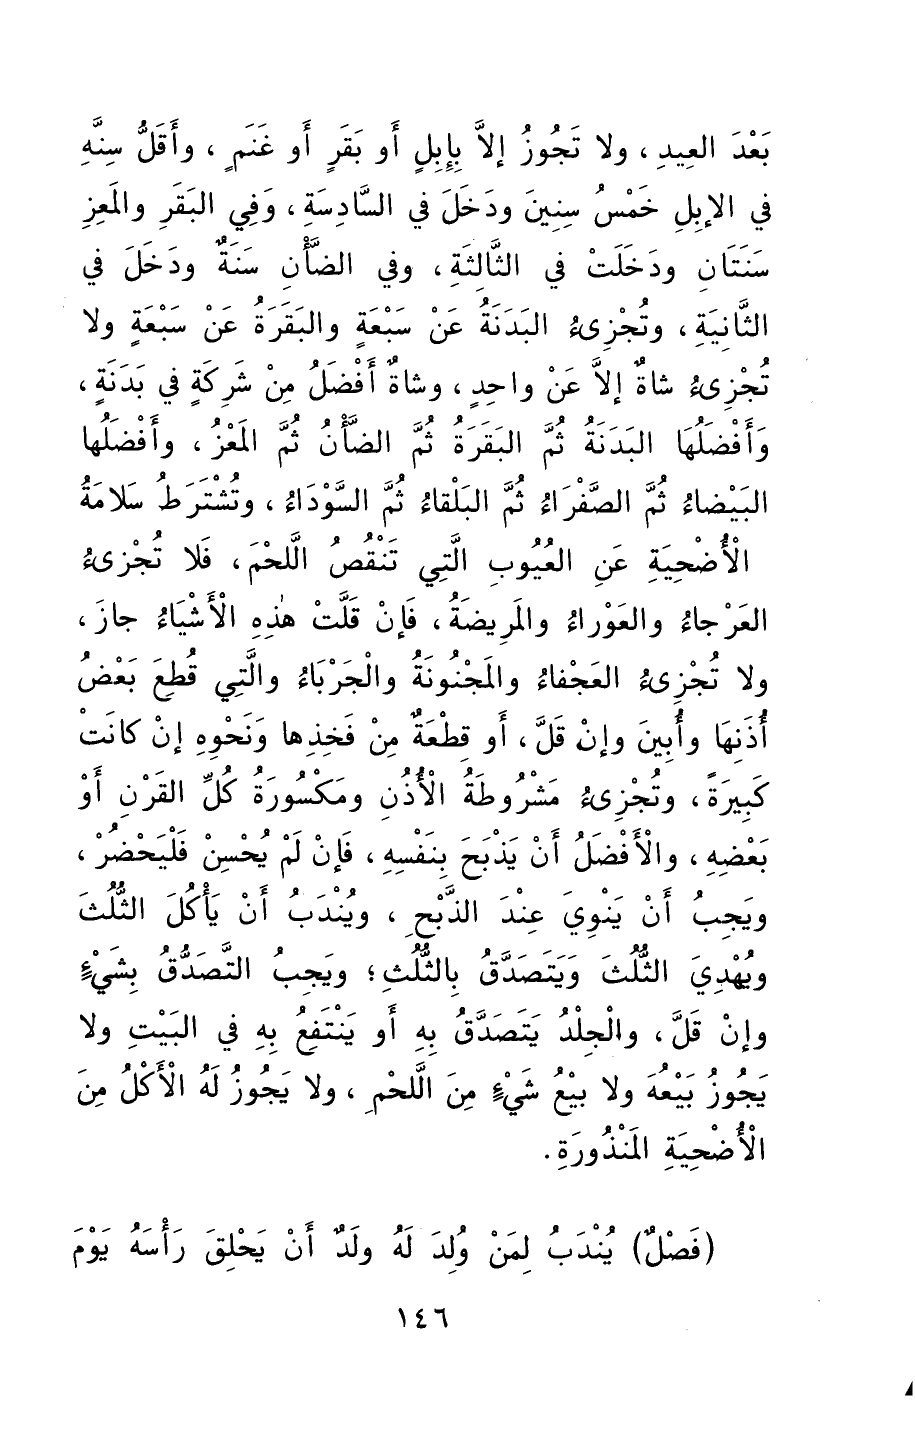 بَعْدَ العِيدِ ، ولا تَجُوزُ إلاَّ بِإِبِلٍ أَو بَقَرٍ أَو غَنَمٍ ، وأَقَلُّ سِنِّهِ
في الإبِلِ خَمْسُ سِنِينَ ودَخَلَ في السَّادِسَةِ ، وَفِي البَقَرِ والمَعِزِ
سَنَتَانِ ودَخَلَتْ في الثَّالثَةِ ، وفي الضَّأْنِ سَنَةٌ ودَخَلَ في
الثَّانِيَةِ ، وتُجْزِىءُ البَدَنَةُ عَنْ سَبْعَةٍ والبَقَرَةُ عَنْ سَبْعَةٍ ولا
تُجْزِىءُ شاةٌ إلاَّ عَنْ واحِدٍ ، وشاةٌ أَفْضَلُ مِنْ شَرِكَةٍ في بَدَنَةٍ ،
وَأَفْضَلُهَا البَدَنَةُ ثُمَّ البَقَرَةُ ثُمَّ الضَّأْنُ ثُمَّ المَعْزُ ، وأَفْضَلُها
البَيْضاءُ ثُمَّ الصَّفْرَاءُ ثُمَّ البَلْقاءُ ثُمَّ السَّوْدَاءُ ، وتُشْتَرَطُ سَلامَةُ
الْأُضْحِيَةِ عَنِ العُيُوبِ الَّتِي تَنْقُصُ اللَّحْمَ ، فَلا تُجْزِىءُ
العَرْجاءُ والعَوْراءُ والمَرِيضَةُ ، فَإنْ قَلَّتْ هٰذِهِ الْأَشْيَاءُ جازَ ،
ولا تُجْزِىءُ العَجْفاءُ والمَجْنُونَةُ والْجَرْبَاءُ والَّتِي قُطِعَ بَعْضُ
أُذَنِهَا وأُبِينَ وإنْ قَلَّ ، أَو قِطْعَةٌ مِنْ فَخِذِها وَنَحْوِهِ إنْ كانَتْ
كَبِيرَةً ، وتُجْزِىءُ مَشْرُوطَةُ الْأُذُنِ ومَكْسُورَةُ كُلِّ القَرْنِ أَوْ
بَعْضِهِ ، والْأَفْضَلُ أَنْ يَذْبَحَ بِنَفْسِهِ ، فَإنْ لَمْ يُحْسِنْ فَلْيَحْضُرْ ،
ويَجِبُ أَنْ يَنْوِيَ عِنْدَ الذَّبْحِ ، ويُنْدَبُ أَنْ يَأْكُلَ الثُّلُثَ
ويُهْدِيَ الثُّلُثَ وَيَتَصَدَّقُ بِالثُّلُثِ ؛ ويَجِبُ التَّصَدُّقُ بِشَيْءٍ
وإنْ قَلَّ ، والْجِلْدُ يَتَصَدَّقُ بِهِ أَو يَنْتَفِعُ بِهِ في البَيْتِ ولا
يَجُوزُ بَيْعُهُ ولا بيْعُ شَيْءٍ مِنَ اللَّحْمِ ، ولا يَجُوزُ لَهُ الْأَكْلُ مِنَ
الْأُضْحِيَةِ المَنْذُورَةِ .
(فَصْلٌ) يُنْدَبُ لِمَنْ وُلِدَ لَهُ ولَدٌ أَنْ يَحْلِقَ رَأْسَهُ يَوْمَ
١٤٦